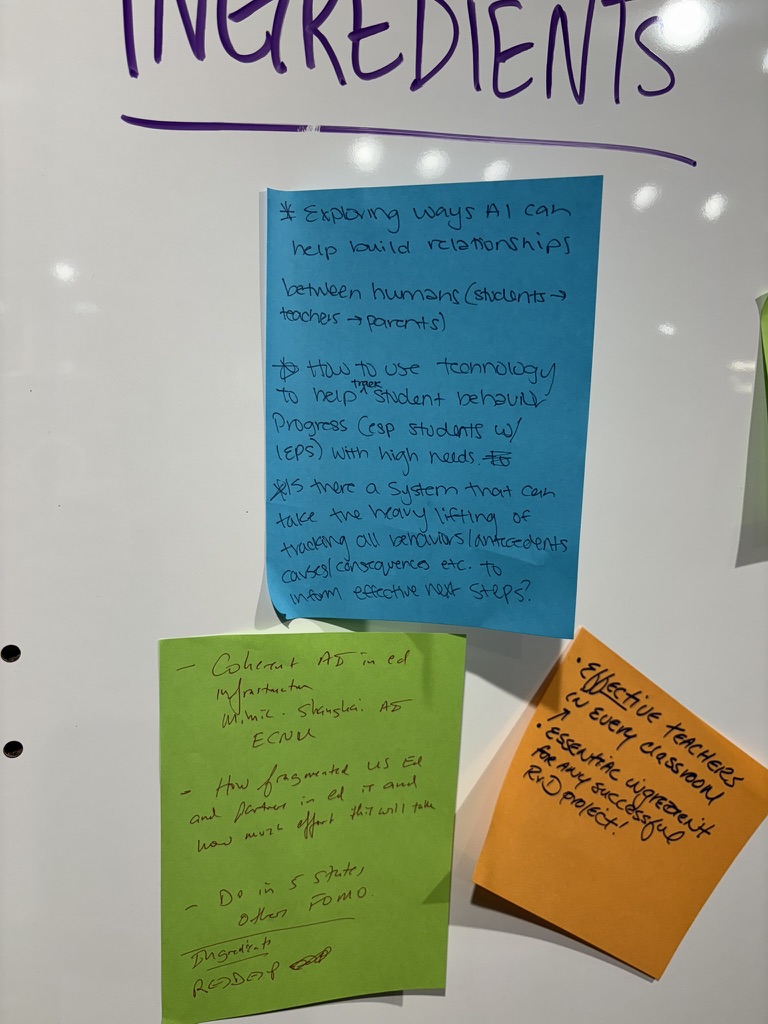 INGREDIENTS
* Exploring ways AI can
help build relationships
between humans (students →
teachers → parents)
* How to use technology
to help track student behavior
Progress (esp students w/
IEPS) with high needs.
* Is there a system that can
take the heavy lifting of
tracking all behaviors/antecedents
causes/consequences etc. to
inform effective next steps?
- Coherent AI in ed
infrastructure
Mimic. Shanghai. AI
ECNU
- How fragmented US Ed
and partner in ed is and
how much effort this will take
- Do in 5 states,
others FOMO.
Ingredients
• EFFECTIVE TEACHERS
IN EVERY CLASSROOM
↗
• ESSENTIAL INGREDIENT
FOR ANY SUCCESSFUL
R+D PROJECT!